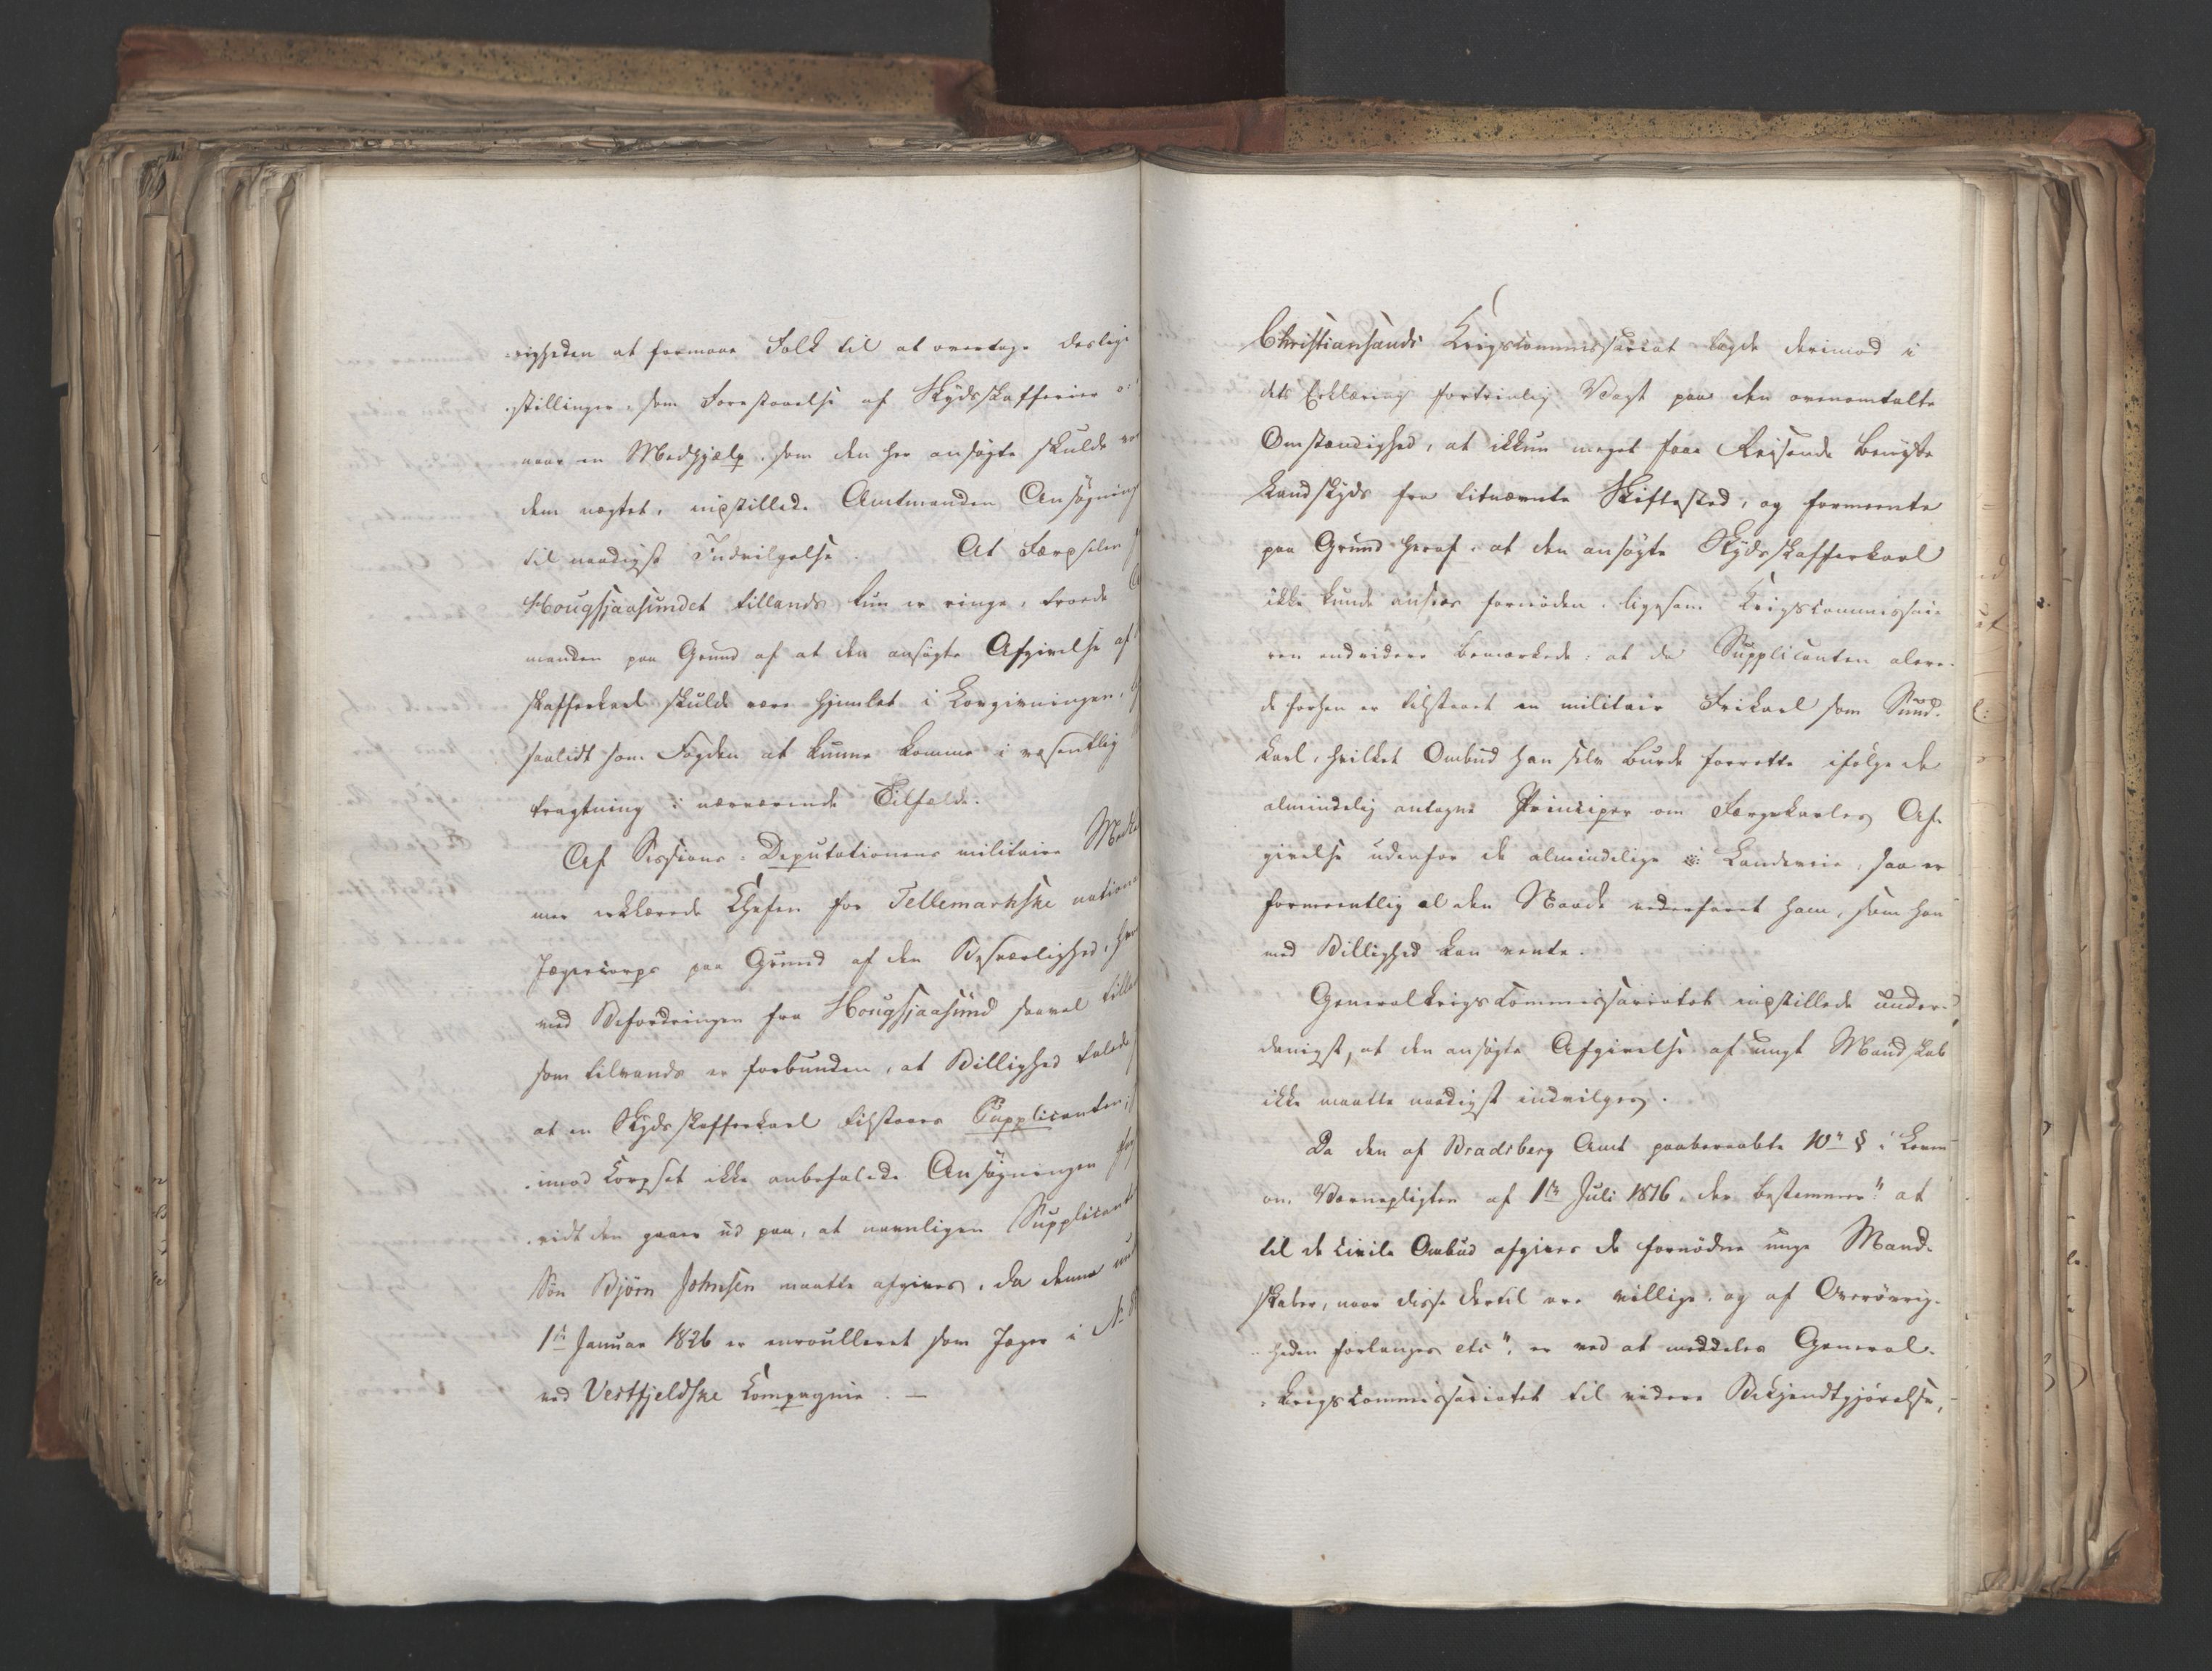 righeden at formaae Folk til at overtage deslige
stillinger, som Forestaaelse af Skydsskafferier o:
naar en Medhjælp, som den her ansøgte skulde
dem nægtet, inpstillede Amtmanden Ansøgning
til naadigst Indvilgelse. At Færpselen
Hougsjaasundet tillands kun er ringe, troede
manden paa Grund af at den ansøgte Afgivelse af
skafferkarl skulde være hjemlet i Lovgivningen,
saalidt som Fogden at kunne komme i væsentlig
tragtning i nærværende Tilfælde.
Af Sessions-Deputationens militaire
mer erklærede Chefen for Tellemarkske nation
Jægercorps paa Grund af den Besværlighed,
med Befordringen fra Hougsjaasund saavel
som tilvands er forbunden, at Billighed talede
at en Skydsskafferkarl tilstaaes Supplicanten,
imod Corpset ikke anbefalede Ansøgningen
vidt den gaaer ud paa, at navnligen Supplicant
Søn Bjørn Johnsen maatte afgives, da denne
1te Januar 1826 er enroulleret som Jæger i
ved Vestfjeldske Compagnie. —
Christiansands Krigscommissariat lagde derimod i
dets Erklæring fortrinlig Vægt paa den ovenomtalte
Omstændighed, at ikkun meget faae Reisende benytte
Landskyds fra bitnævnte Skiftested, og formeente
paa Grund heraf, at den ansøgte Skydsskafferkarl
ikke kunde ansees fornøden, ligesom Krigscommissai-
ren endvidere bemærkede: at da Supplicanten alere-
de forhen er tilstaaet en militair Frikarl som Sund-
karl, hvilket Ombud han selv burde forrette ifølge de
almindelig antagne Principer om Færgekarles Af-
givelse udenfor de almindelige Landeveie, saa er
formeentlig al den Naade vederfaret ham, som han
med Billighed kan vente.
Generalkrigscommissariatet inpstillede under-
danigst, at den ansøgte Afgivelse af ungt Mandskab
ikke maatte naadigst indvilges.
Da den af Bradsberg Amt paaberaabte 10de § i Loven
om Værnepligten af 1te Juli 1816, der bestemmer "at
til de civile Ombud afgives de fornødne unge Mand-
skaber, naar disse dertil ere villige, og af Overøvrig-
heden forlanges etc", er ved at meddeles General-
krigscommissariatet til videre Bekjendtgjørelse,